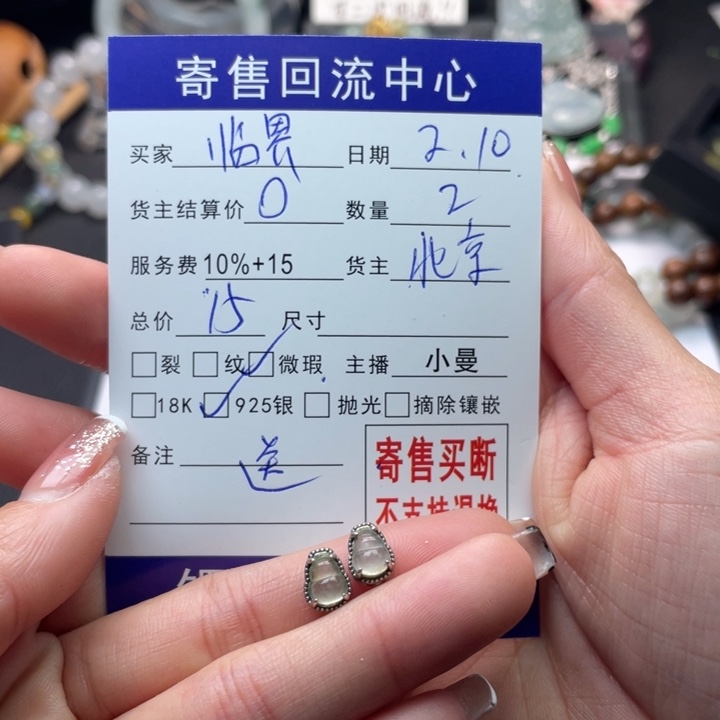 寄售回流中心
买家 临畏 日期 2.10
货主结算价 0 数量 2
服务费 10%+15 货主 北京
总价 15 尺寸
裂 纹 微瑕 主播 小曼
18K 925银 抛光 摘除镶嵌
备注 送
寄售买断
不支持退换